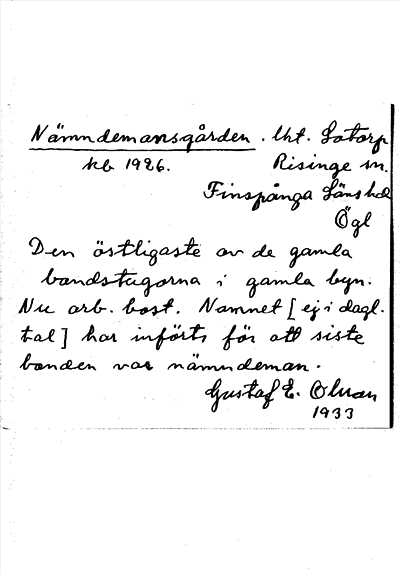 Nämndemansgården. lht. Lotorp
kb 1926. Risinge sn.
Finspånga Länshd
Ögl
Den östligaste av de gamla
bondstugorna i gamla byn.
Nu arb. bost. Namnet [ej i dagl.
tal] har införts för att siste
bonden var nämndeman.
Gustaf E. Olsson
1933